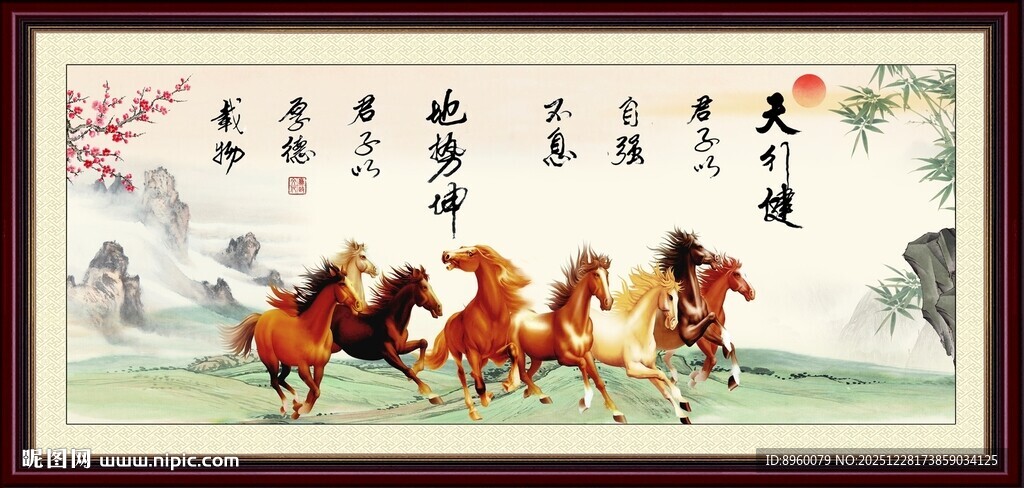 天行健
君子以
自强
不息
地势坤
君子以
厚德
载物
昵图网 www.nipic.com
ID:8960079 NO:20251228173859034125